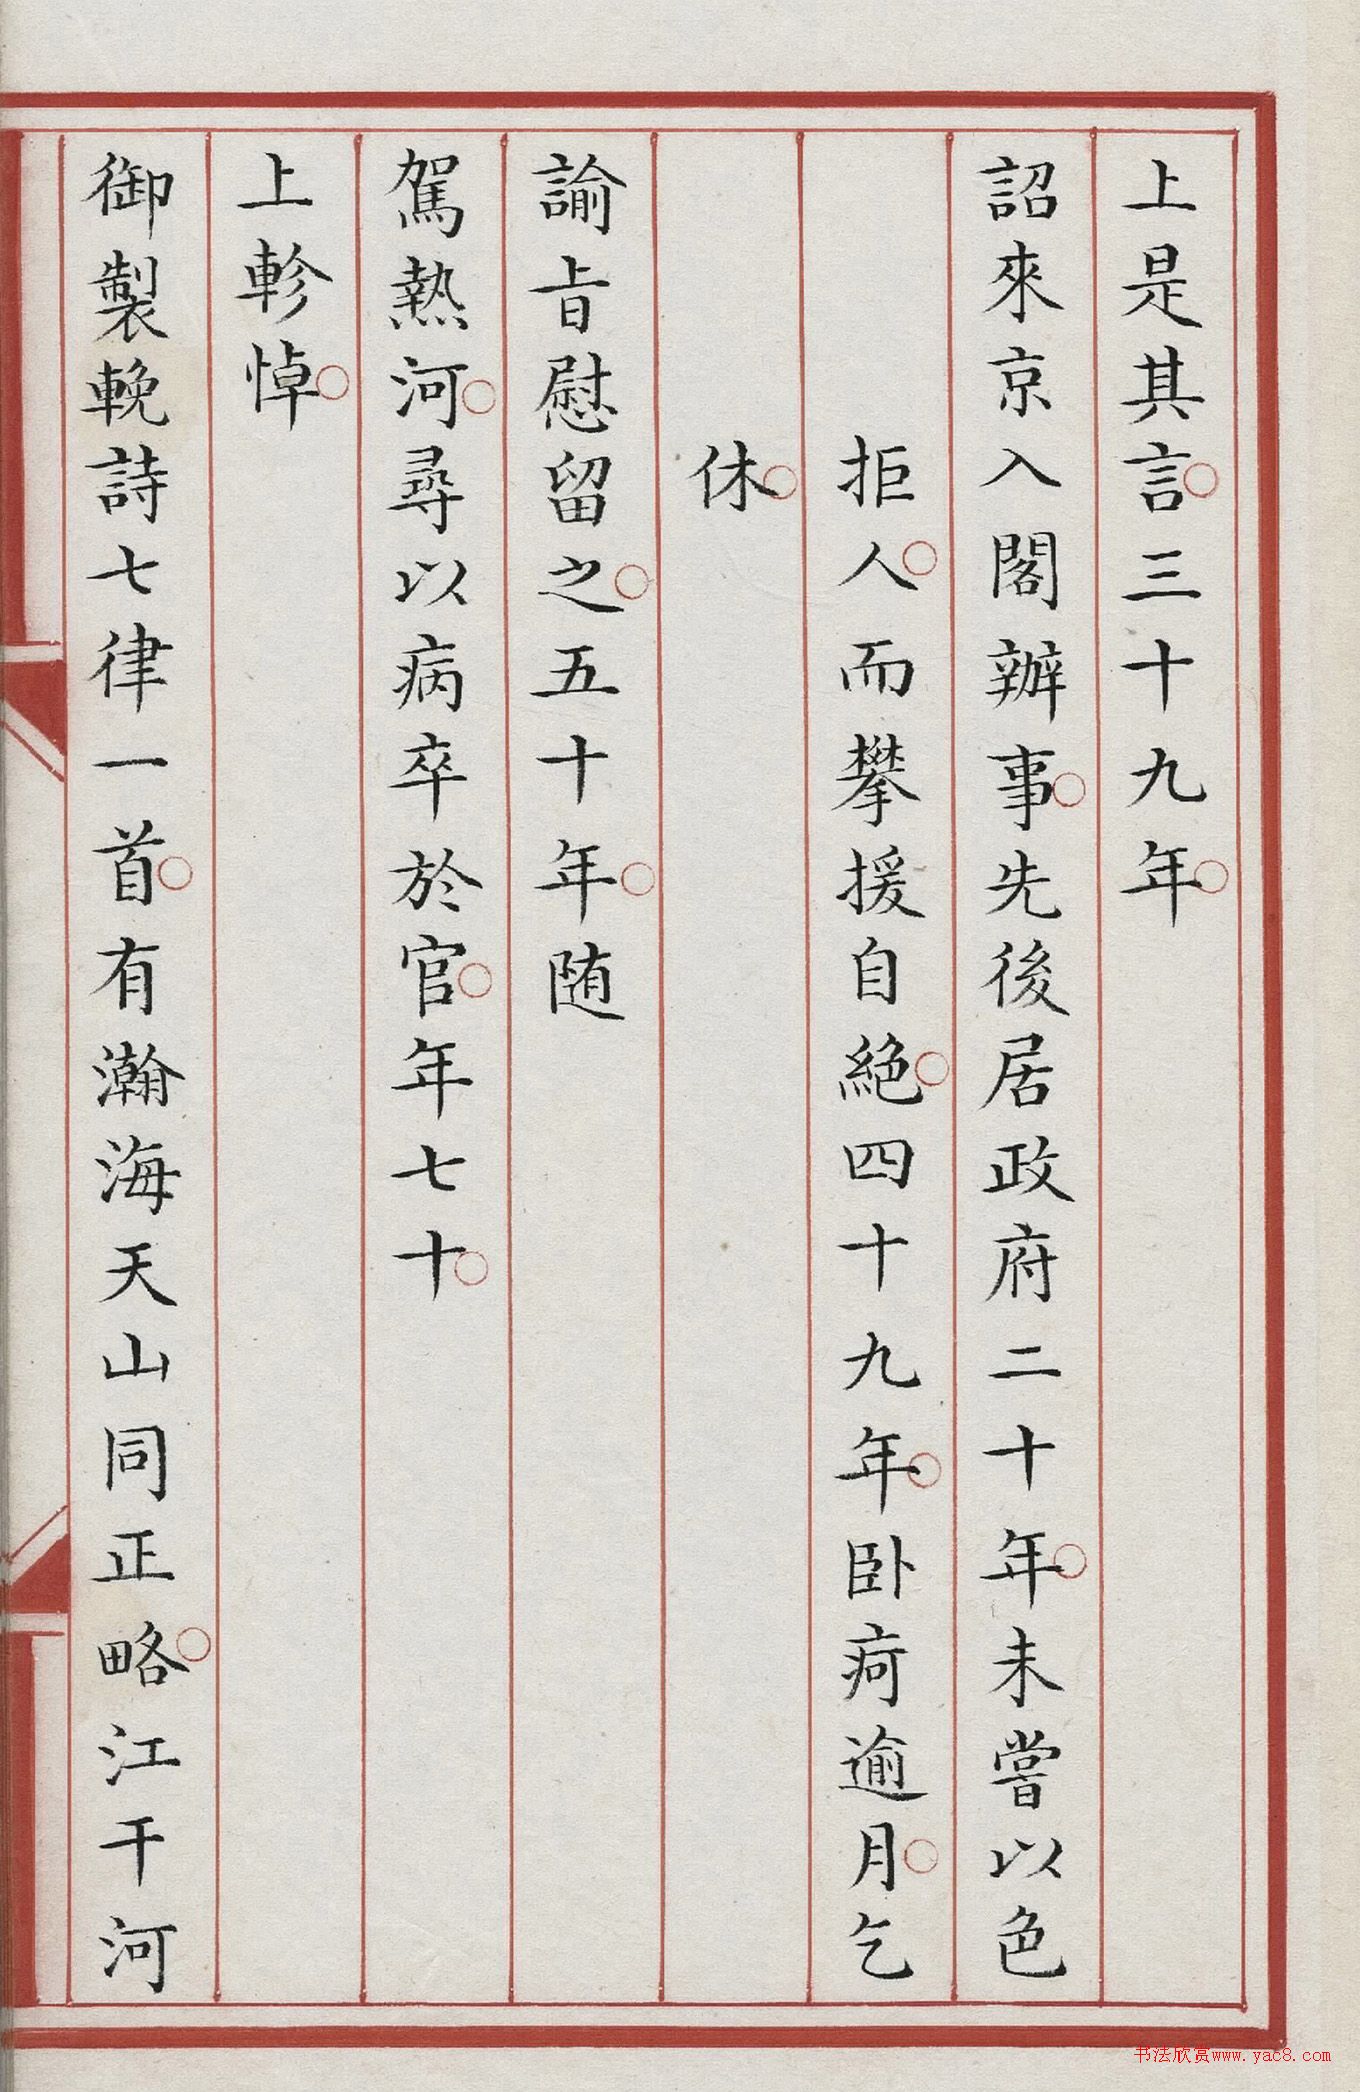 上是其言三十九年
詔來京入閣辦事先後居政府二十年未嘗以色
拒人而攀援自絕四十九年卧疴逾月乞
休
諭旨慰留之五十年随
駕熱河尋以病卒於官年七十
上軫悼
御製輓詩七律一首有瀚海天山同正略江干河
书法欣赏www.yac8.com